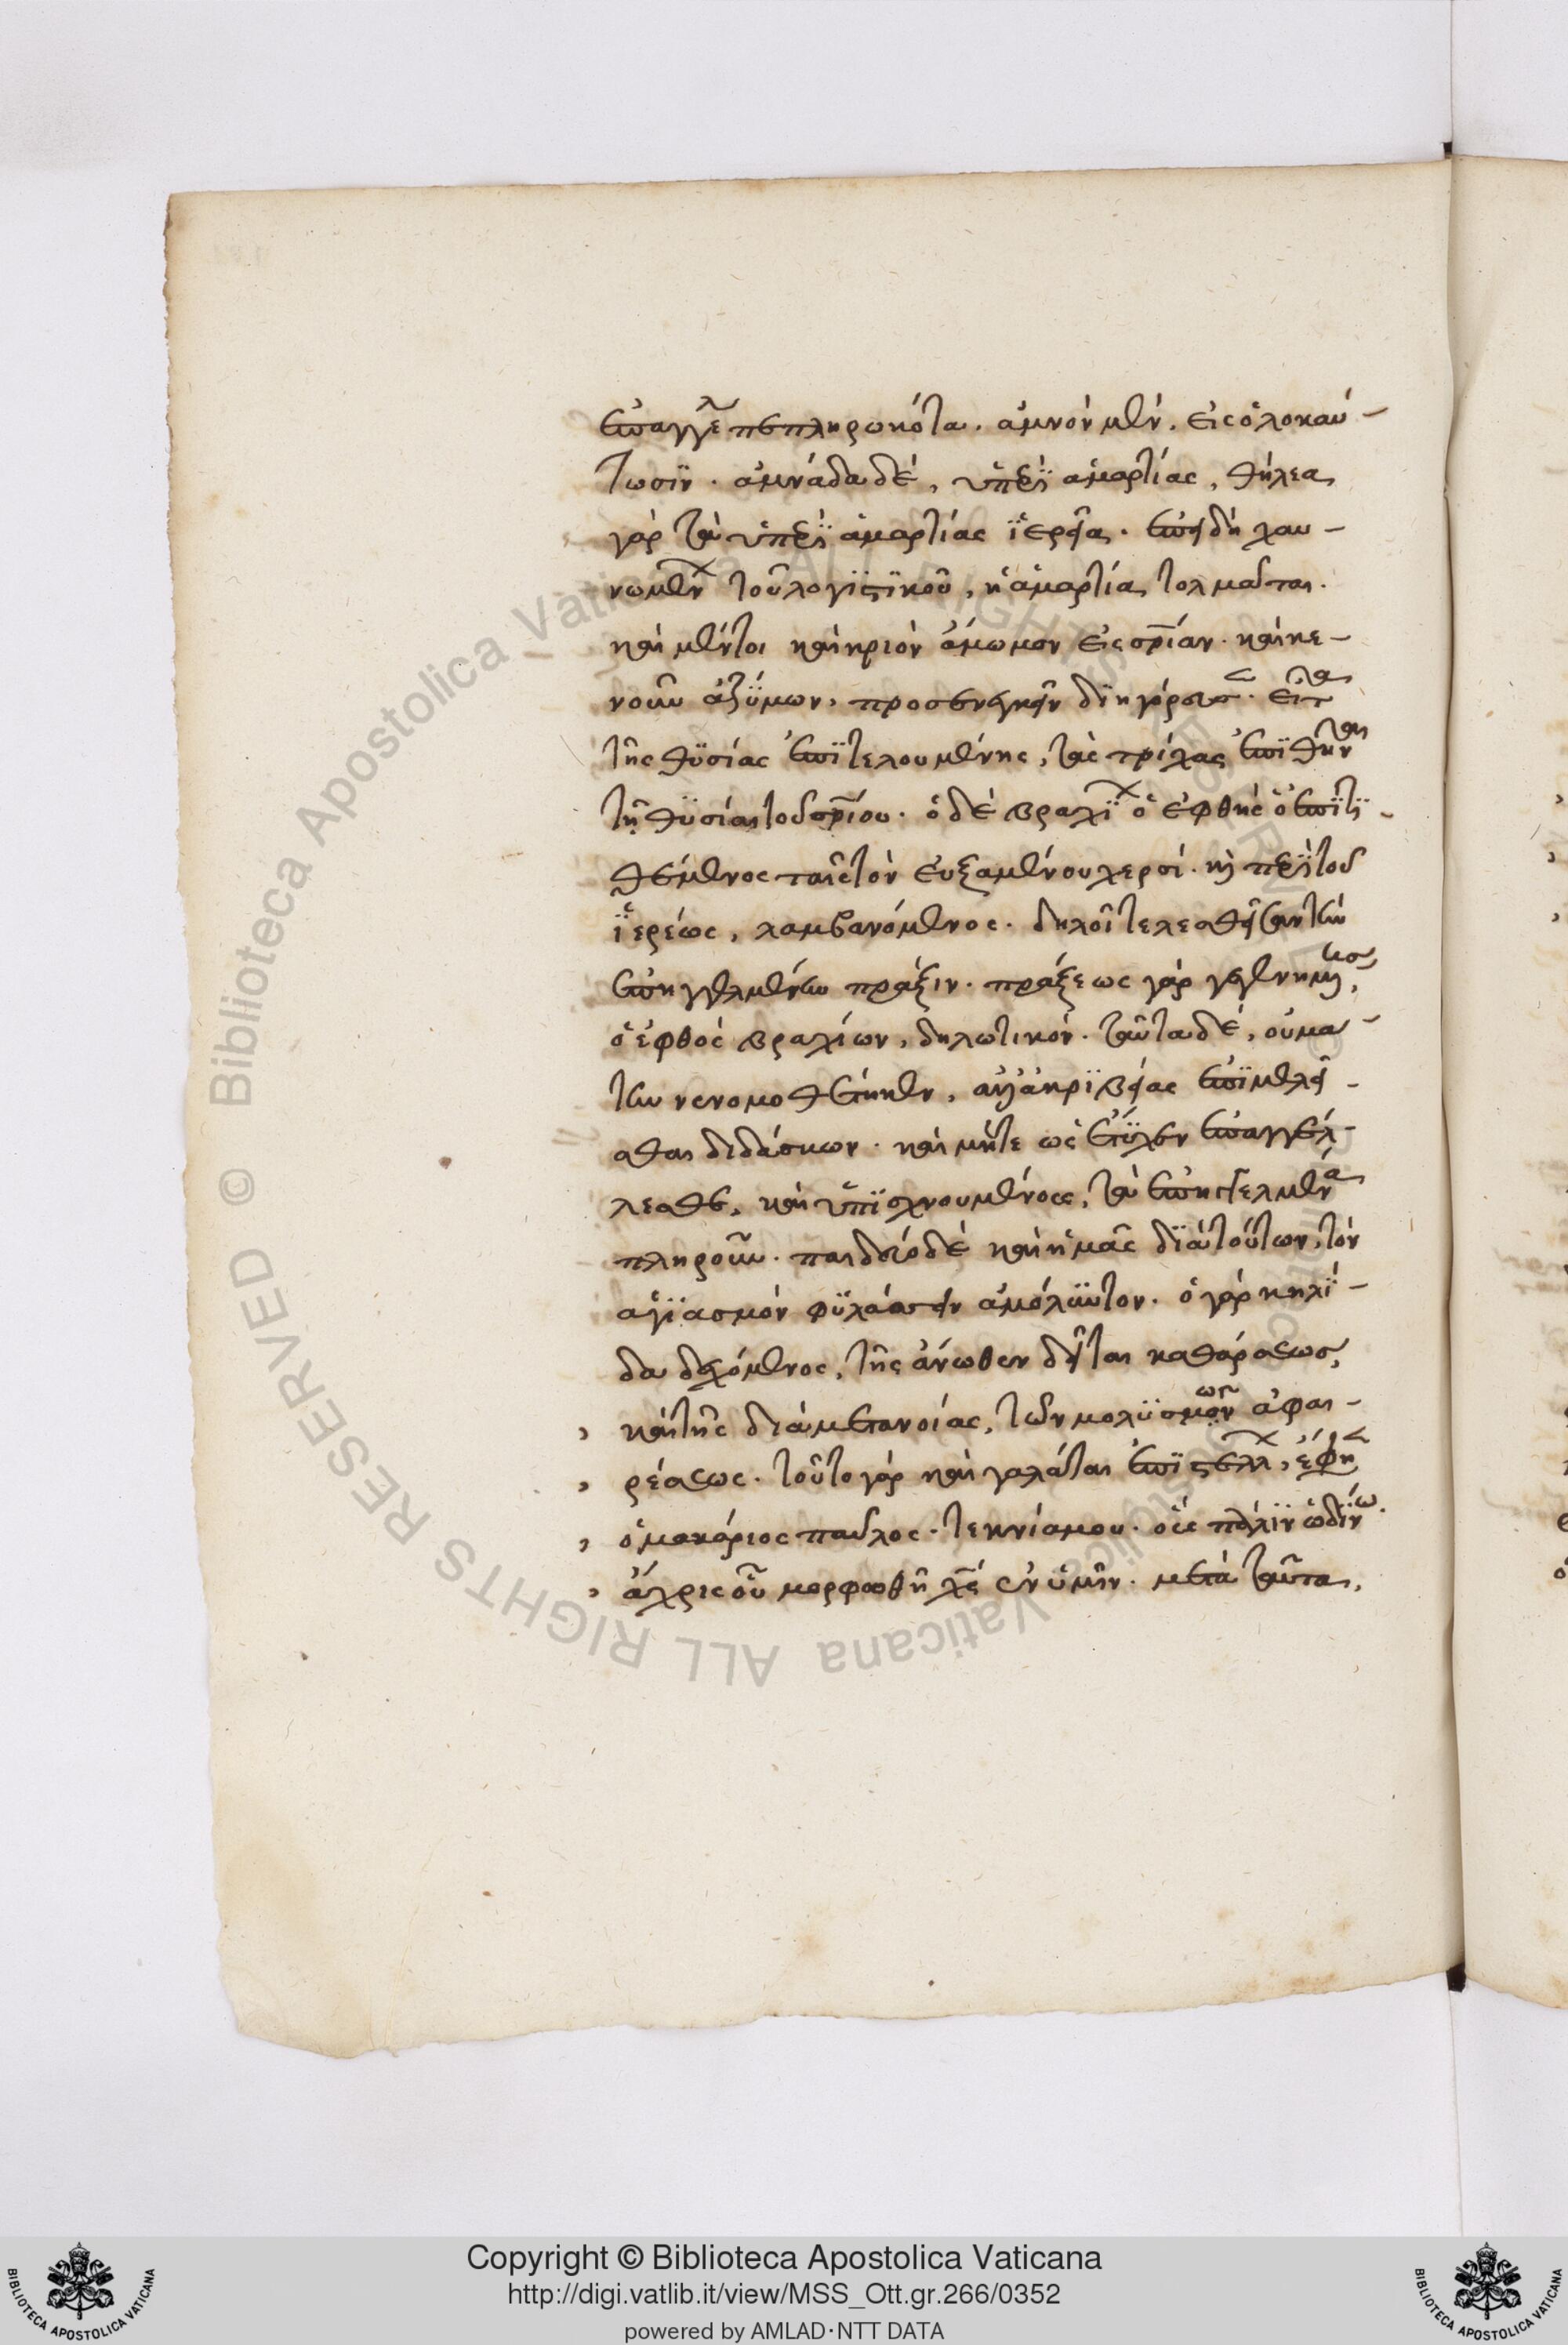 ἐπαγγελ πεπληρωκότα. ἀμνὸν μὲν, εἰς ὁλοκαύ-
τωσϊν. ἀμνάδα δὲ, ὑπὲρ ἁμαρτίας, θήλεα
γὰρ τὰ ὑπὲρ ἁμαρτίας ϊερεῖα. ἐπειδὴ χαυ-
νωμέν τοῦ λογϊστϊκοῦ, ἡ ἁμαρτία τολμᾶται.
καὶ μέντοι καὶ κριὸν ἄμωμον εἰς σρίαν. καὶ κε-
νοῦν ἀζύμων, προσενεγκεῖν δϊηγόρευσ. εἶτα
τῆς θϋσίας ἐπϊτελουμένης, τὰς τρίχας ἐπϊθῆναι
τῆ θϋσία τοῦ σρίου. ὁ δὲ βραχϊ ὁ ἑφθὸς ὁ ἐπϊτϊ-
θέμενος ταῖς τὸν εὐξαμένου χερσὶ. καὶ περὶ τοῦ
ἱερέως, λαμβανόμενος. δηλοῖ τελεσθεῖσαν τὴν
ἐπηγγελμένην πρᾶξιν. πράξεως γὰρ γεγενημένης,
ὁ ἑφθὸς βραχίων, δηλωτικόν. ταῦτα δὲ, οὐ μά-
την νενομοθέτηκεν, ἀλλ' ἀκρϊβείας ἐπϊμελεῖ-
σθαι διδάσκων. καὶ μήτε ὡς ἔτϋχεν ἐπαγγέλ-
λεσθαι, καὶ ὑπϊσχνουμένοις, τὰ ἐπηγγελμένα
πληροῦν. παιδεύει δὲ καὶ ἡμᾶς δϊὰ τούτων, τὸν
ἁγϊασμὸν φϋλάττειν ἀμόλϋντον. ὁ γὰρ κηλῖ-
δα δεχόμενος, τῆς ἄνωθεν δεῖται καθάρσεως,
καὶ τῆς διὰ μετανοίας, τῶν μολϋσμῶν ἀφαι-
ρέσεως. τοῦτο γὰρ καὶ γαλάταις ἐπϊστέλλ, ἔφη
ὁ μακάριος παῦλος. τεκνία μου. οὓς πάλϊν ὠδίνω.
ἄχρις οὗ μορφωθῆ χς ἐν ὑμῖν. μετὰ ταῦτα,
Copyright © Biblioteca Apostolica Vaticana
http://digi.vatlib.it/view/MSS_Ott.gr.266/0352
powered by AMLAD·NTT DATA